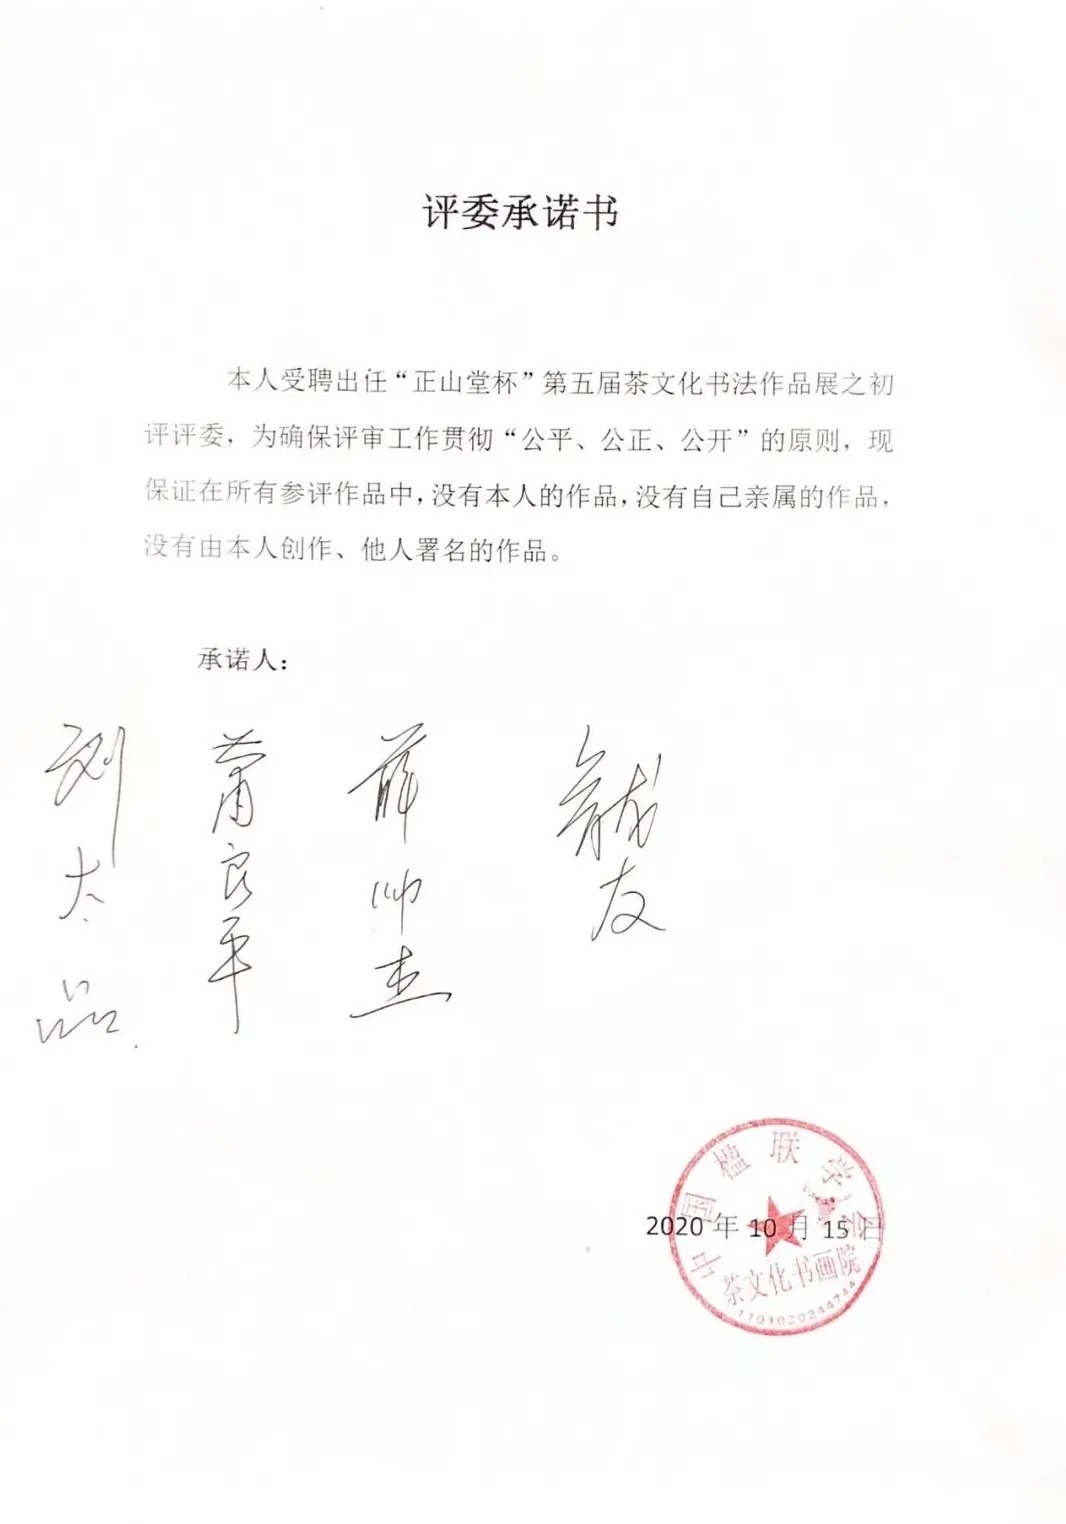 评委承诺书
本人受聘出任“正山堂杯”第五届茶文化书法作品展之初
评评委，为确保评审工作贯彻“公平、公正、公开”的原则，现
保证在所有参评作品中，没有本人的作品，没有自己亲属的作品，
没有由本人创作、他人署名的作品。
承诺人：
刘太品
萧良平
薛帅杰
龙友
2020年10月15日
中国楹联学会
茶文化书画院
1101020244744